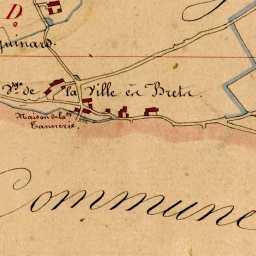 D.
guinard.
V.ge de la Ville en Bretz.
Maison de la
Tannerie
Commune